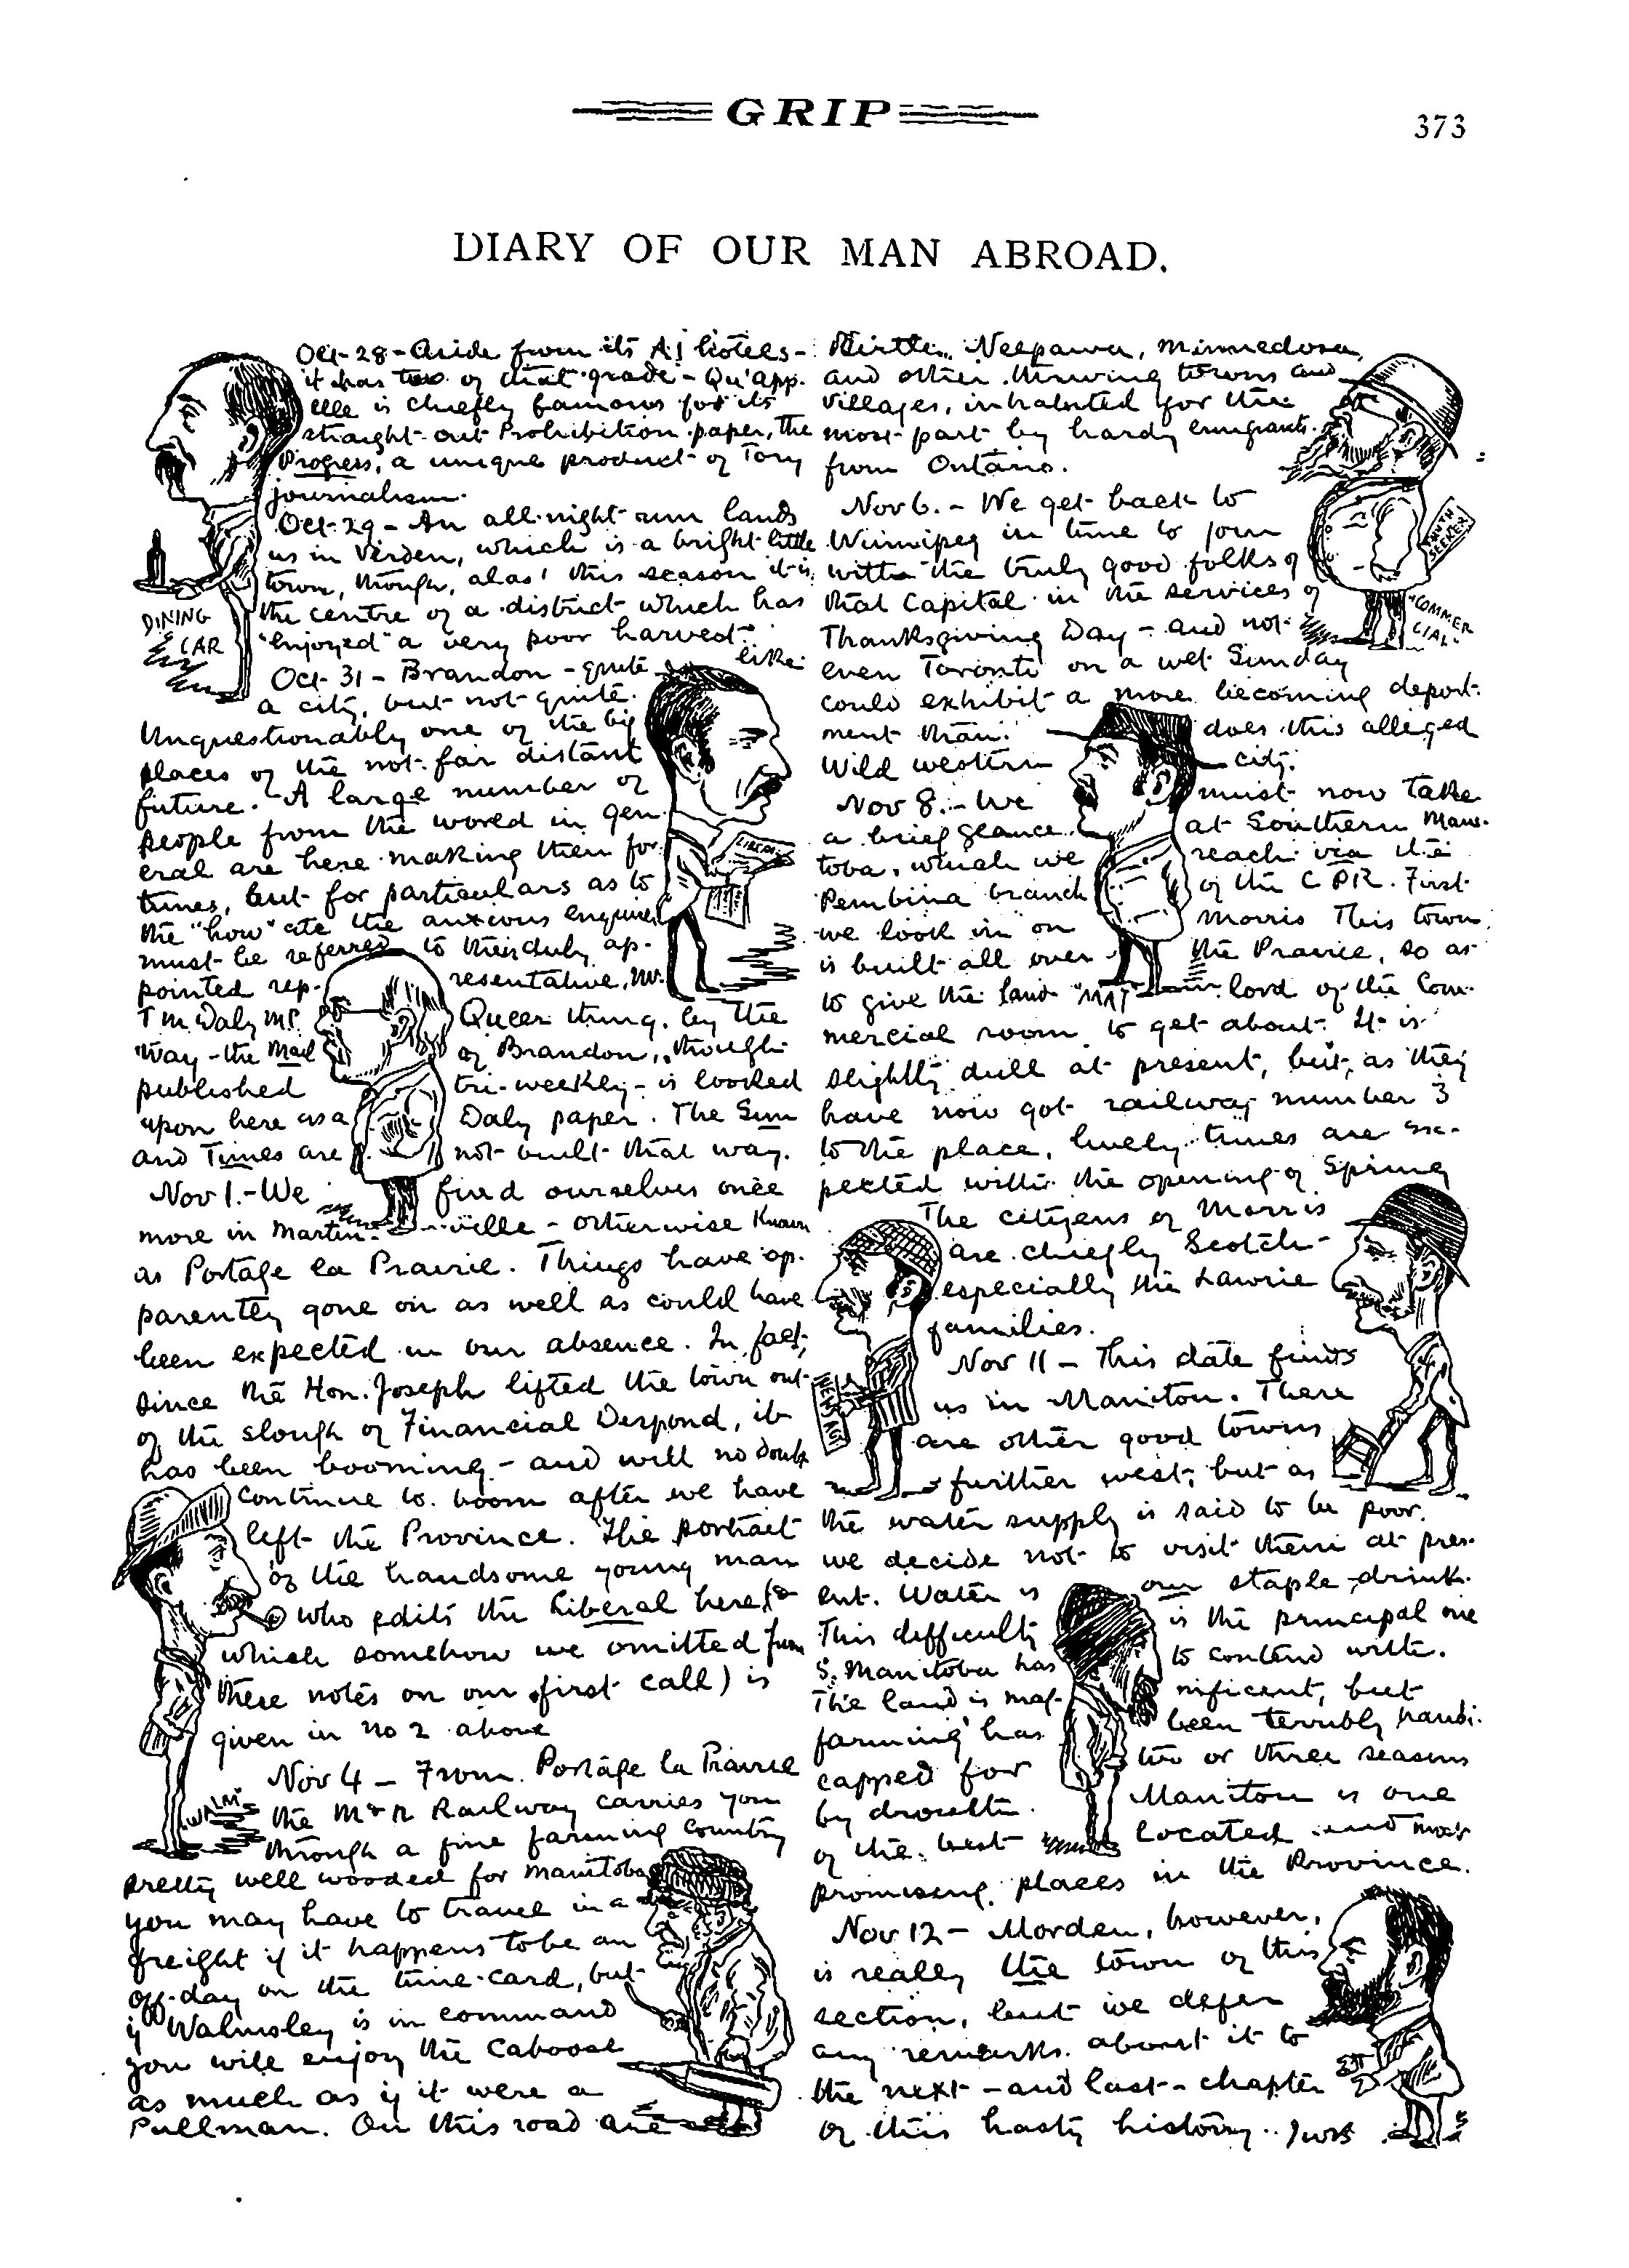 GRIP
373
DIARY OF OUR MAN ABROAD.
Oct-28-Aside from its A1 hotels-
it has two of that grade - Qu'app-
elle is chiefly famous for its
straight-out Prohibition paper, the
Progress, a unique product of Tory
journalism.
Oct-29- An all-night run lands
us in Virden, which is a bright little
town, though, alas! this season it is
the centre of a district which has
"enjoyed" a very poor harvest.
DINING
CAR
Oct 31 - Brandon - quite like
a city, but not quite.
Unquestionably one of the big
places of the not-far distant
future. A large number of
people from the world in gen-
eral are here making their for-
tunes, but for particulars as to
the "how" etc the anxious enquirer
must be referred to their duly ap-
pointed rep-resentative, Mr.
T M Daly MP. Queer thing, by the
way - the Mail of Brandon, though
published tri-weekly - is looked
upon here as a Daly paper. The Sun
and Times are not built that way.
LIBERAL
Nov 1.-We find ourselves once
more in Martin-ville - otherwise Known
as Portage la Prairie. Things have ap-
parently gone on as well as could have
been expected in our absence. In fact,
since the Hon. Joseph lifted the town out
of the slough of Financial Despond, it
has been booming - and will no doubt
continue to boom after we have
left the Province. The portrait
of the handsome young man
who edits the Liberal here
which somehow we omitted from
these notes on our first call) is
given in no 2 above
Nov 4 - From Portage la Prairie
the M & N Railway carries you
through a fine farming country
pretty well wooded for Manitoba
you may have to travel in a
freight if it happens to be an
off-day on the time-card, but
if Walmsley is in command
you will enjoy the Caboose
as much as if it were a
Pullman. On this road are
"WALM"
Birtle, Neepawa, Minnedosa,
and other thriving towns and
villages, inhabited for the
most part by hardy emigrants
from Ontario.
Nov 6. - We get back to
Winnipeg in time to join
with the truly good folks of
that Capital in the services of
Thanksgiving Day - and not
even Toronto on a wet Sunday
could exhibit a more becoming deport-
ment than does this alleged
Wild western city.
TRUTH
SEEKER
"COMMER
CIAL"
Nov 8. - We must now take
a brief glance at Southern Mani-
toba, which we reach via the
Pembina branch of the C P R. First
we look in on Morris This town
is built all over the Prairie, so as
to give the land-lord of the Com-
mercial room to get about. It is
slightly dull at present, but, as they
have now got railway number 3
to the place, lively times are ex-
pected with the opening of Spring
"MAT"
The citizens of Morris
are chiefly Scotch -
especially the Lawrie
families.
Nov 11 - This date finds
us in Manitou. There
are other good towns
further west, but as
the water supply is said to be poor.
we decide not to visit them at pres-
ent. Water is our staple drink.
This difficulty is the principal one
S. Manitoba has to contend with.
The land is mag-nificent, but
farming has been terribly handi-
capped for two or three seasons
by drouth. Manitou is one
of the best located and most
promising places in the Province.
Nov 12 - Morden, however,
is really the town of this
section, but we defer
any remarks about it to
the next - and last - chapter
of this hasty history.